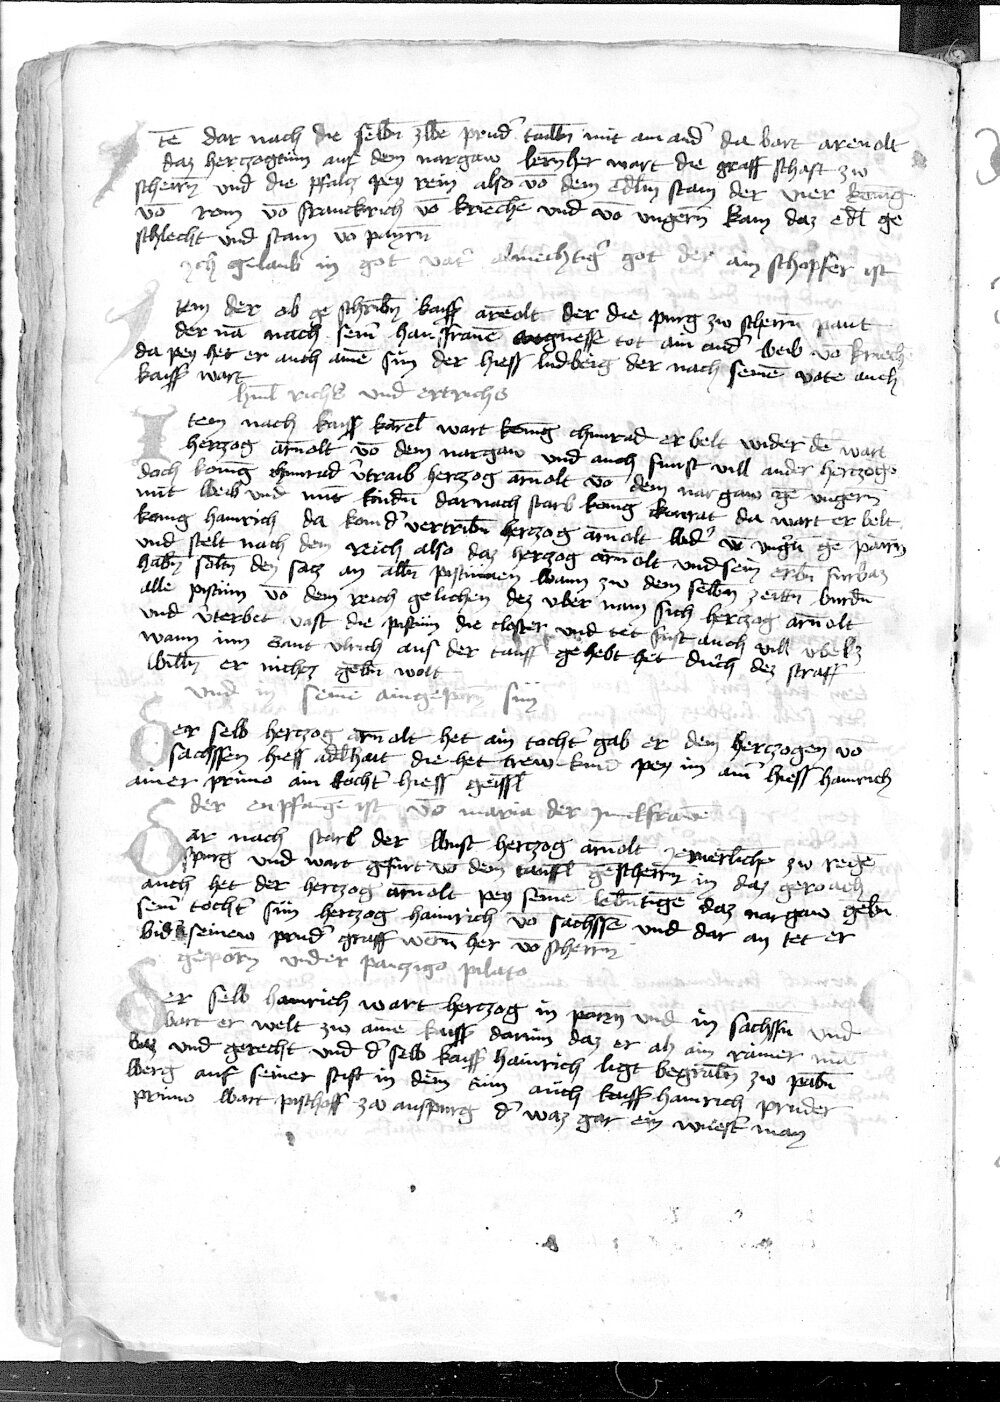 tē dar nach die selbn̄ zbē prud' tailtn̄ mit an and' da bart arenolt
daz herczogtum auf dem nargaw bernher wart die graff schaft zw
scheirn̄ und die pfalcz pey rein also vō dem edlm̄ stam der vier konig
vō rom vō franckrich vō kriechē und vō ungern̄ kam daz edl ge
schlecht und stam vō payrn̄
ych gelaub in got vat' almechtig' got der ain schopfer ist
Item der ob ge schribn̄ kaiss' arēolt der die purg zw scherrn̄ paut
der nā nach sein' han frauē agnesse tot ain and' beib vō kriech
da pey het er auch ainē sun der hiess ludberg der nach seinē vate auch
kaiss' wart
himl richs und ertrichs
Item nach kaiss' karel wart konig chunrad er belt wider dē wart
herczog arnolt vō dem nargaw und auch sunst vill ander herczogē
doch konig chunrad v'traib herczog arnolt vō dem nargaw gē ungern̄
mit beib und mit kindn̄ darnach starb konig konrat da wart er belt
konig hainrich da kom d' vertribn̄ herczog arnolt bid' vō ung'n̄ gē parn̄
und stelt nach dem reich also daz herczog arnolt und sein erbn̄ furbaz
habn̄ soltn̄ den sacz an alln̄ pistumen wann zw dem selbn̄ zeittn̄ burdn̄
alle pistum vō dem reich gelichen dez uber nam sich herczog arnolt
und v'terbet vast die pistum die closter und tet sust auch vill ubelz
wann inn sant ulrich aus der tauff gehebt het durch dez straff
billn̄ er nichcz gebn̄ wolt
und in seinē aingeporn̄ sun
Der selb herczog arnolt het ain tocht' gab er dem herczogen vō
sachssen hiess adlhait die het trew kind pey im ain' hiess hainrich
ainer primo ain tocht' hiess geissl
der enpfange ist vō maria der junckfrawē
Dar nach starb der bust herczog arnolt jemerlichē zw regē
spurg und wart gefurt vō dem tauffl gē scherrn̄ in daz geroach
auch het der herczog arnolt pey seinē lebn̄tigē daz nargaw gebn̄
sein' tocht' sun herczog hainrich vō sachssē und dar an tet er
bid' seinew prud' graff wern her vō scherrn̄
geporn̄ under panczigo pilato
Der selb hainrich wart herczog in parn̄ und in sachssn̄ und
bart er welt zw aine kaiss' darum daz er alz ain rainer mā
baz und gerecht und d' selb kaiss' hainrich ligt begrabn̄ zw pabn̄
berg auf seiner stift in dem tum auch kaiss' hainrich pruder
primo bart pischoff zw auspurg d' waz gar ein wuest' man